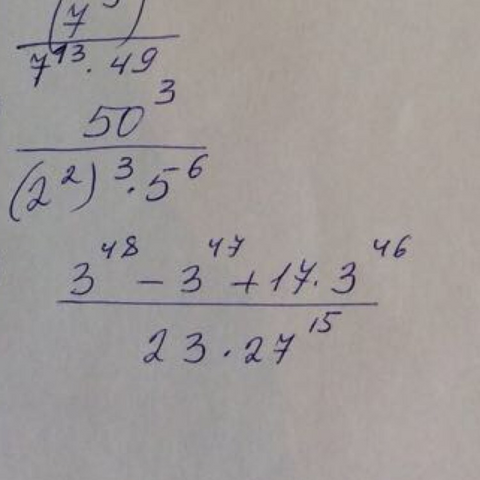 (7^3)
7^13 · 49
50^3
(2^2)^3 · 5^6
3^48 − 3^47 + 17 · 3^46
23 · 27^15